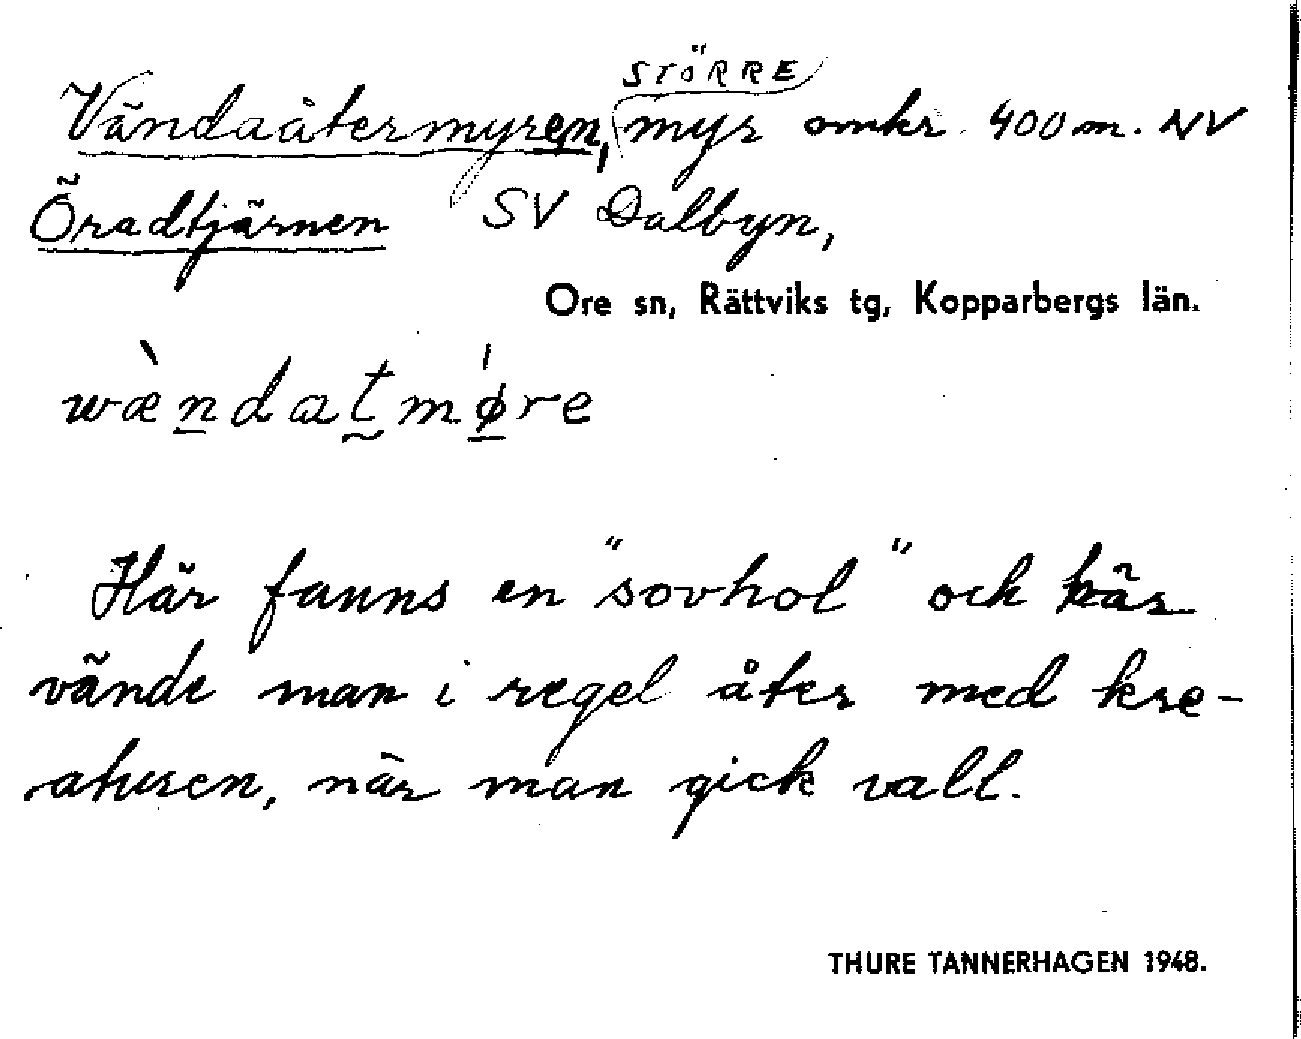 STÖRRE
Vändaåtermyren, myr omkr. 400 m. NV
Öradtjärnen SV Dalbyn,
Ore sn, Rättviks tg, Kopparbergs län.
wæ̀ndat̰mǿre
Här fanns en "sovhol" och här
vände man i regel åter med kre-
aturen, när man gick vall.
THURE TANNERHAGEN 1948.